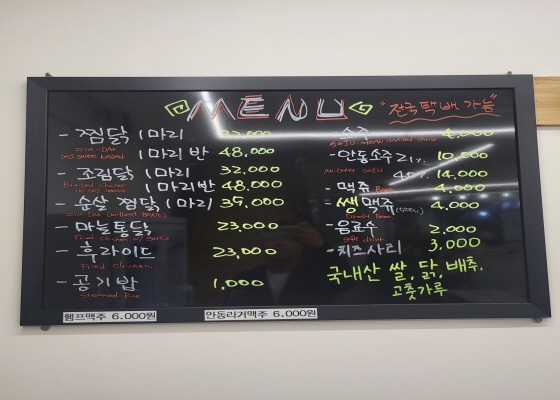 MENU "전국택배 가능"
- 찜닭 1마리 32,000
1마리 반 48,000
- 조림닭 1마리 32,000
1마리반 48,000
- 순살 찜닭 1마리 35,000
- 마늘통닭 23,000
Fried chicken w/ Garlic
- 후라이드 23,000
Fried chicken.
- 공기밥 1,000
Steamed Rice
- 소주 4,000
- 안동소주 21% 10,000
40% 14,000
- 맥주 Beer 4,000
- 쌩맥주 (500cc) 4,000
Draft Beer
- 음료수 2.000
Soft drink
- 치즈사리 3,000
국내산 쌀, 닭, 배추,
고춧가루
햄프맥주 6.000원
안동리거맥주 6.000원